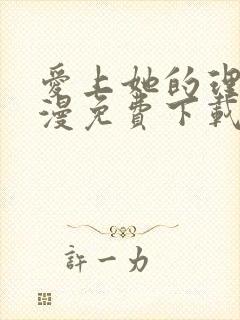 愛上她的理
漫免費下載
許一力